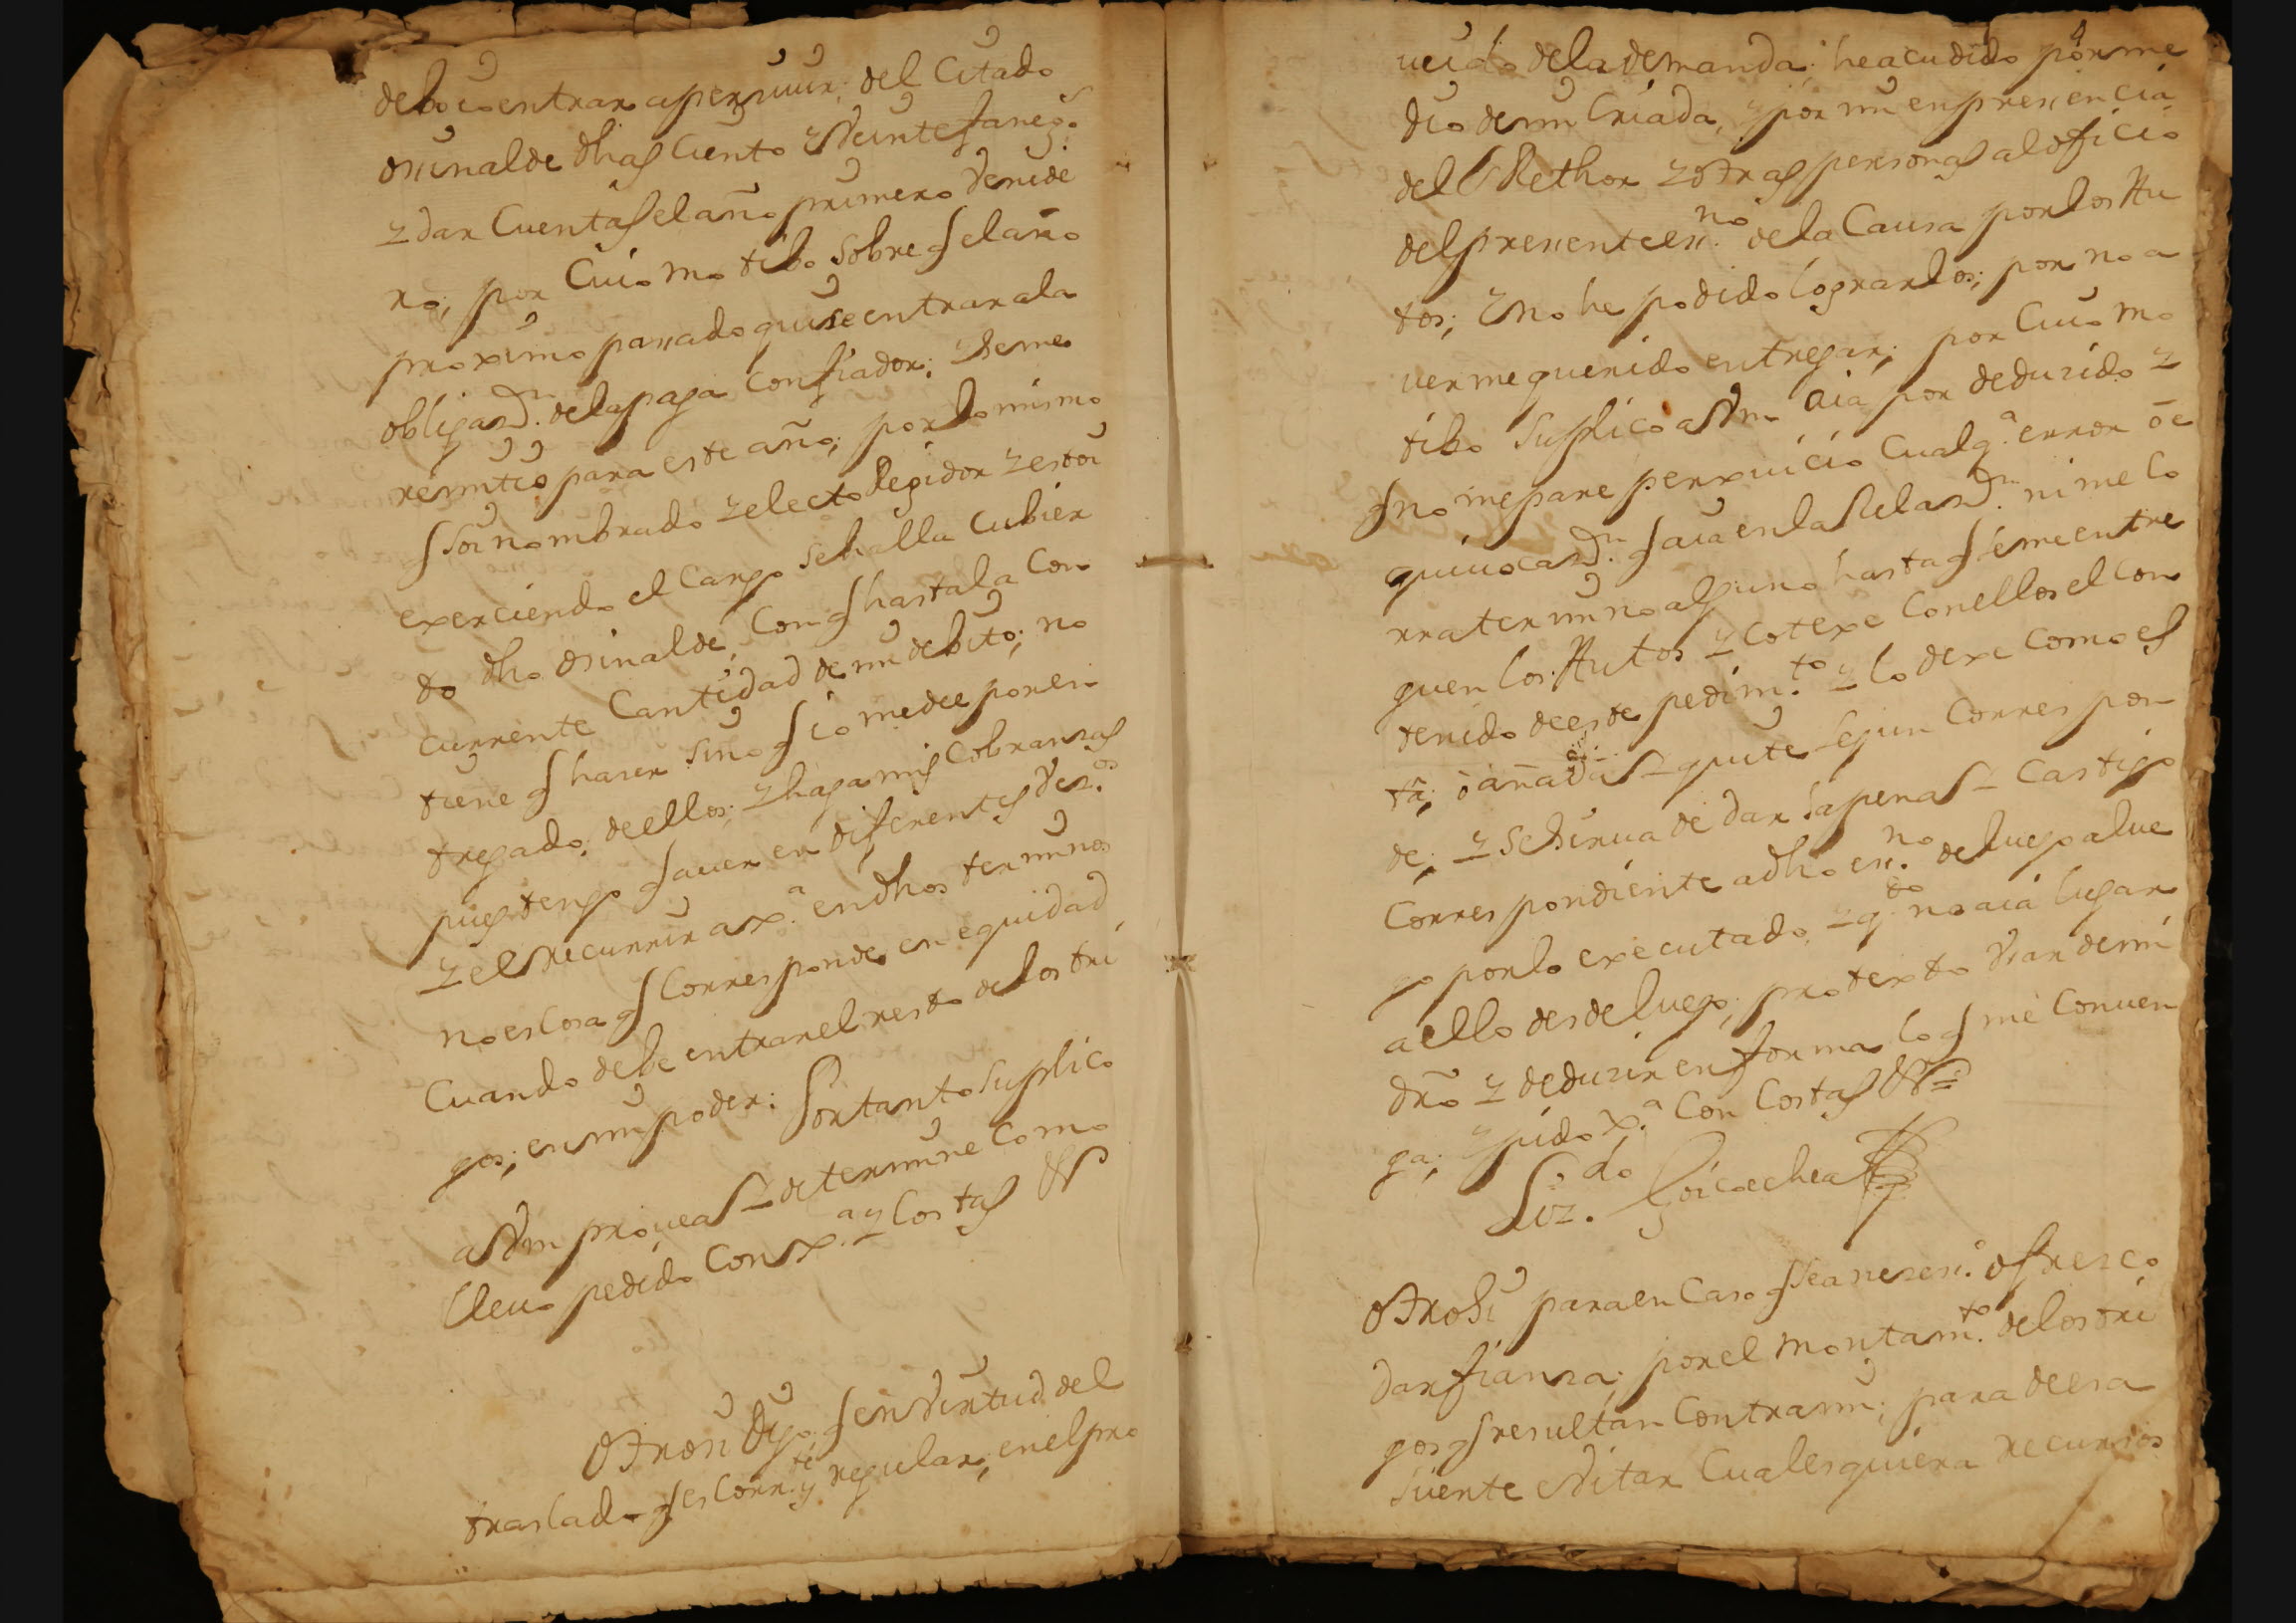 debo io entrar a perziuir; del Citado
orinalde dhas Ciento z Veinte faneg.s
z dar Cuentas el año primero Venide
ro; por Cuio motibo sobre q el año
proximo passado quise entrar a la
obligaz.n de la paga Con fiador; z se me
remitio para este año; por lo mismo
q soi nombrado z electo Regidor z estoi
exerciendo el Cargo se halla Cubier
to dho orinalde, Con q hasta la Con
currente Cantidad de mi debito; no
tiene q haser sino q io me dee por en
tregado; de ellos; z haga mis Cobranzas
pues tengo q auer en diferentes Vez.os
z el recurrir a x.a en dhos terminos
no es Cosa q Corresponde, en equidad
Cuando debe entrar el resto de los tri
gos; en mi poder: Por tanto suplico
a Vm prouea z determine Como
lleuo pedido Con x.a y Costas &
Otrosi Digo q en Virtud del
traslado q es Corr.te y regular; en el pro
ueido de la demanda; he acudido por me
dio de mi Criada, z por mi en pressencia
del S Rethor z otras personas al oficio
del pressente ess.no de la Causa por los Au
tos; z no he podido lograrlos; por no a
uerme querido entregar; por Cuio mo
tibo Suplico a Vm aia por deduzido z
q no me pare perxuicio Cualq.a error o e
quiuocaz.n q aia en la Relaz.n ni me Co
rra termino alguno hasta q se me entre
guen los Autos y Cotexe Con ellos el Con
tenido de este pedim.to y lo dexe Como es
ta; o añada z quite segun Corres pon
de; z se sirua de dar la pena z Castigo
Correspondiente a dho ess.no de luego a lue
go por lo executado, z q.do no aia lugar
a ello desde luego; protexto Vsar de mi
dro z deduzir en forma lo q me Conuen
ga; z pido x.a Con Costas &=
Liz.do Goicoechea
Otrosi para en Caso q sea neszess.o ofresco
dar fianza; por el montam.to de los tri
gos q resultan Contra mi; para de esa
suerte evitar Cualesquiera recursos